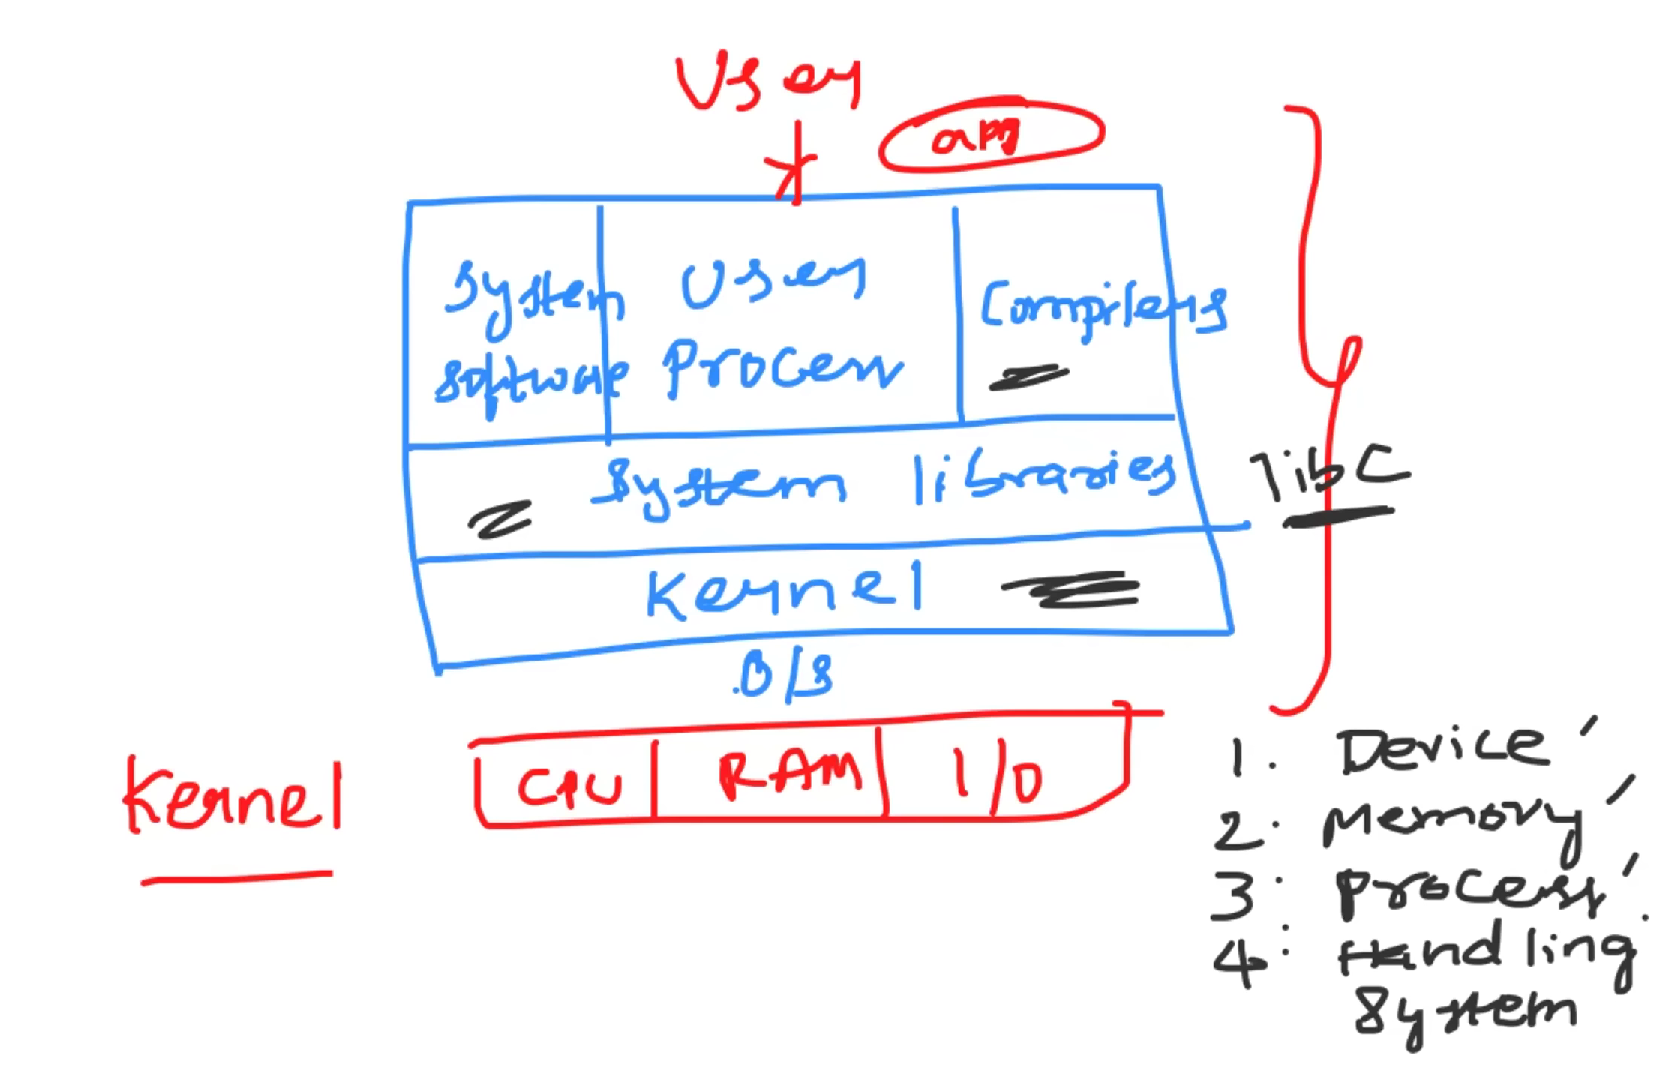 User
app
System
Software
User
Process
Compilers
System libraries
libC
Kernel
O/S
Kernel
CPU
RAM
I/O
1. Device
2. Memory
3. Process
4. Handling
System